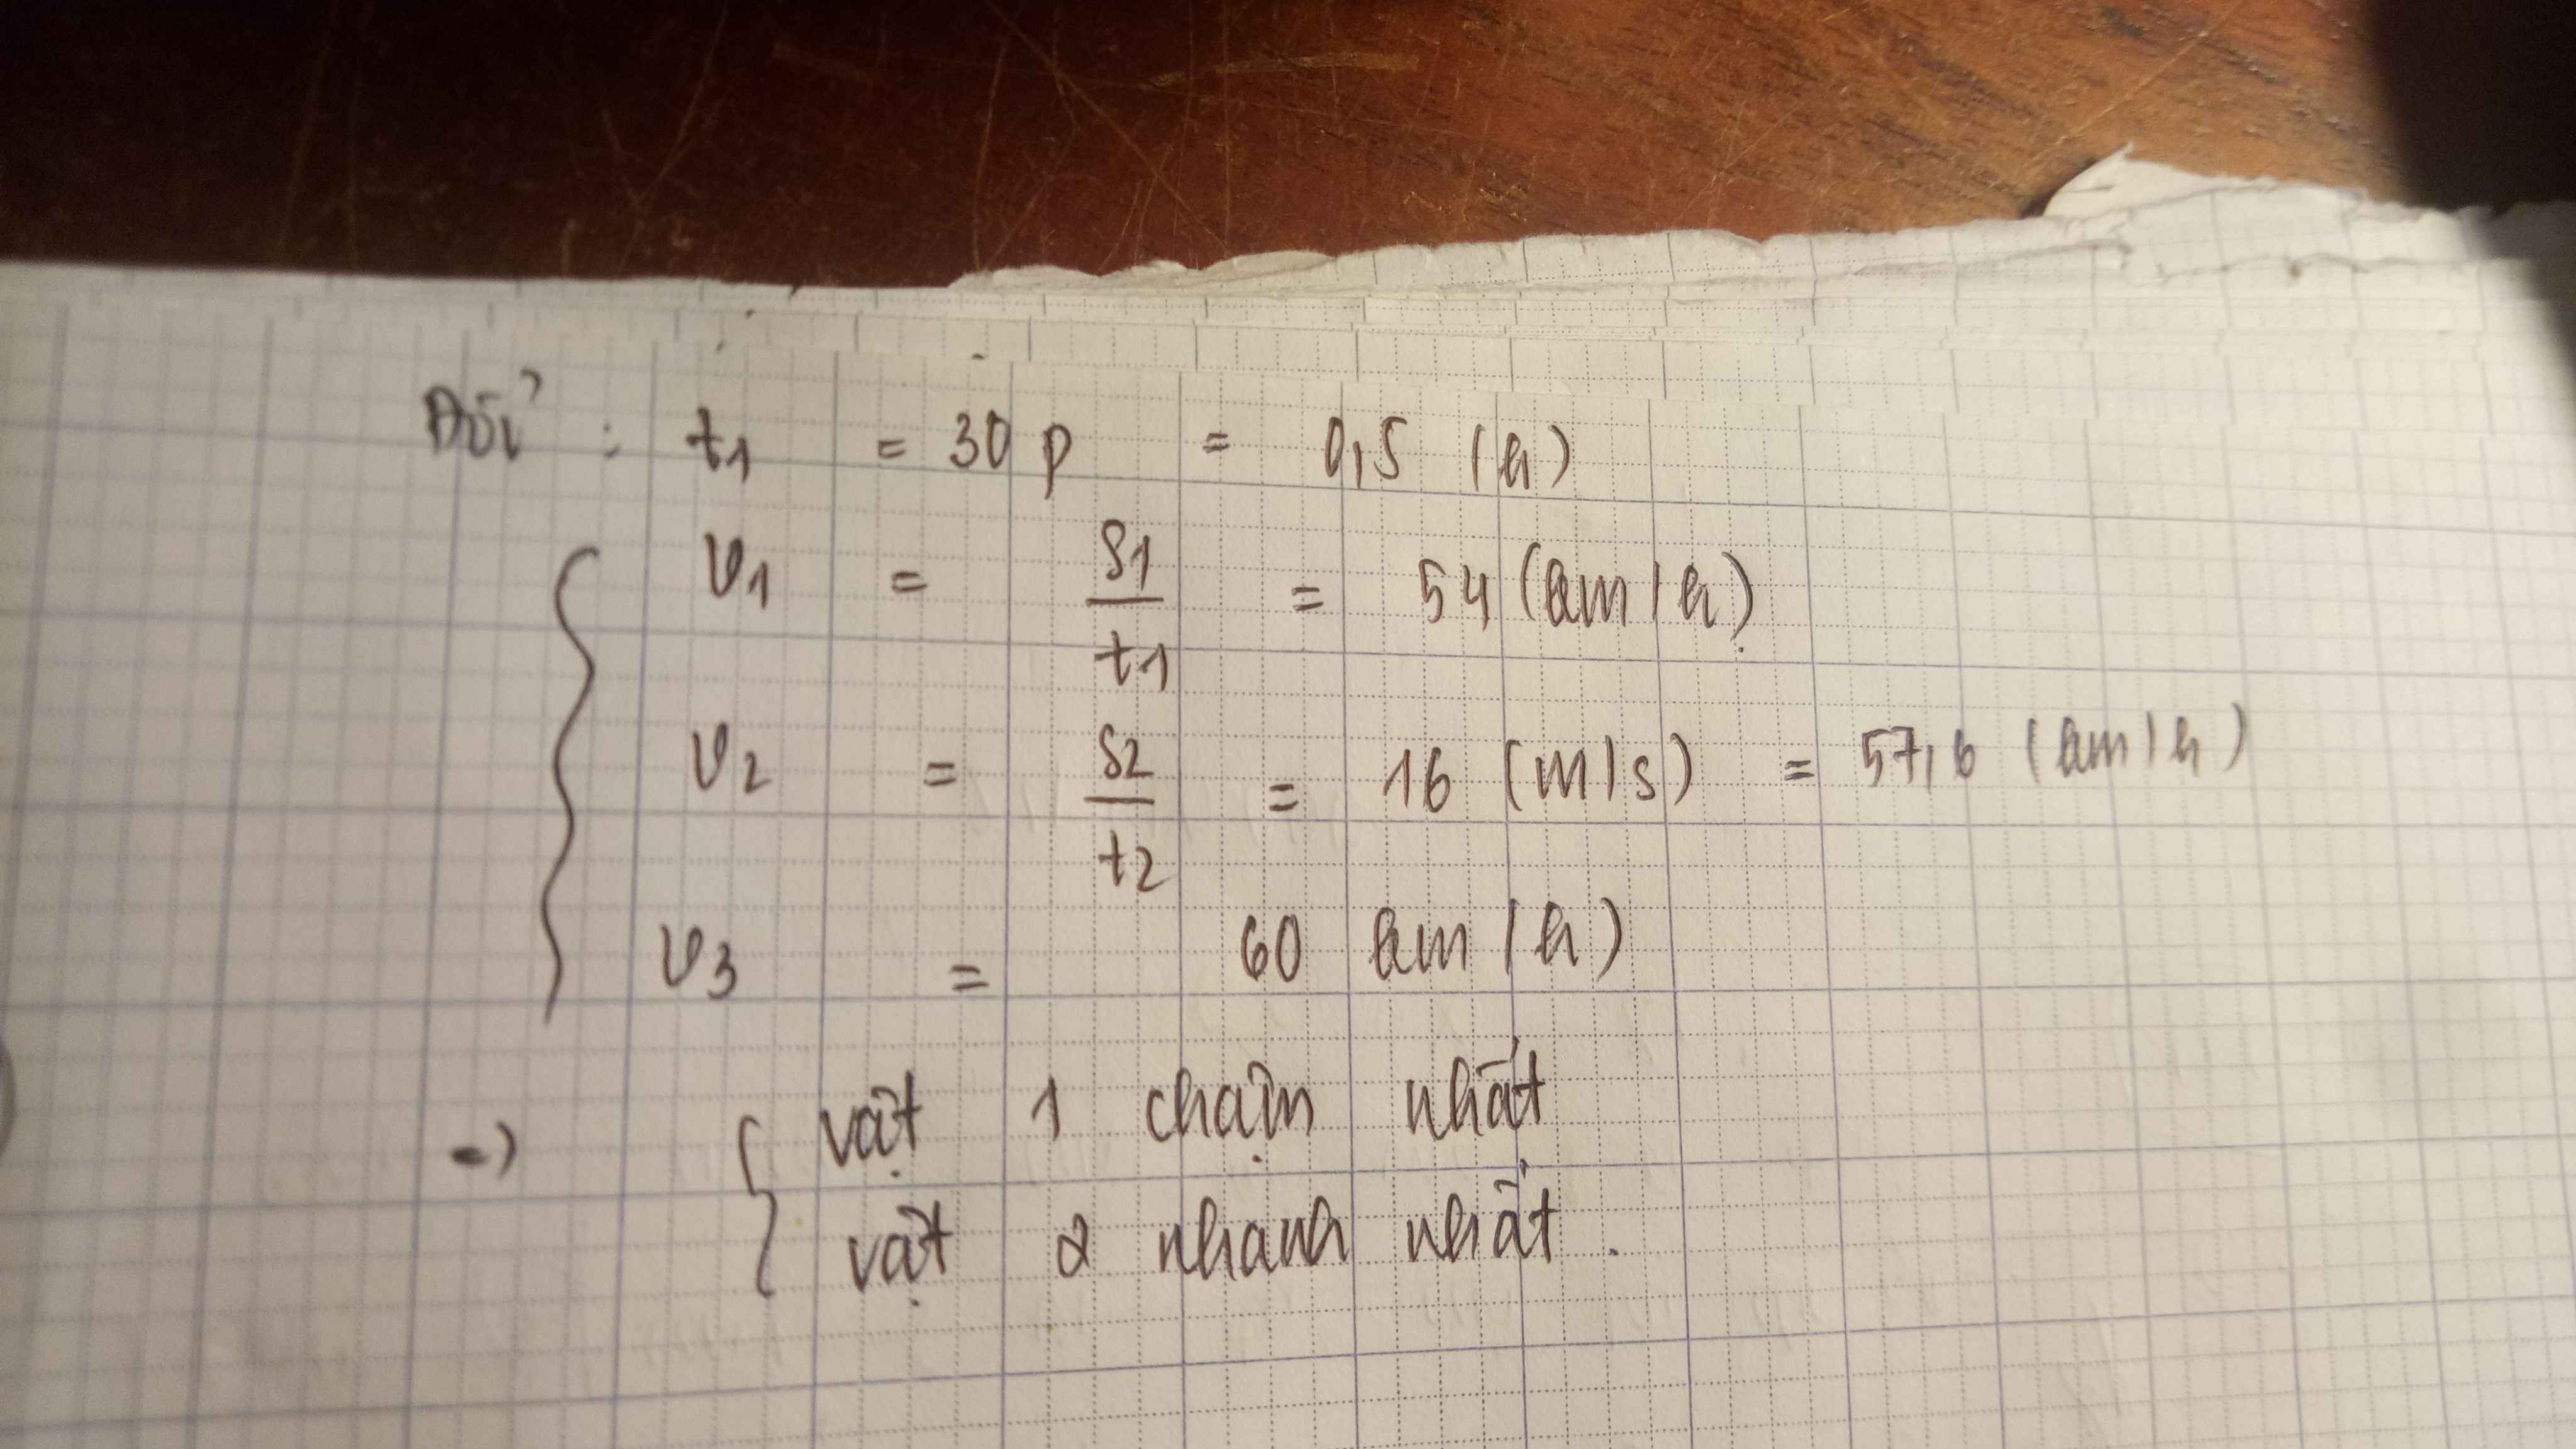 Đổi : t1 = 30 p = 0,5 (h)
v1 = s1/t1 = 54 (km/h)
v2 = s2/t2 = 16 (m/s) = 57,6 (km/h)
v3 = 60 km/h)
=) { vật 1 chậm nhất
vật 2 nhanh nhất.